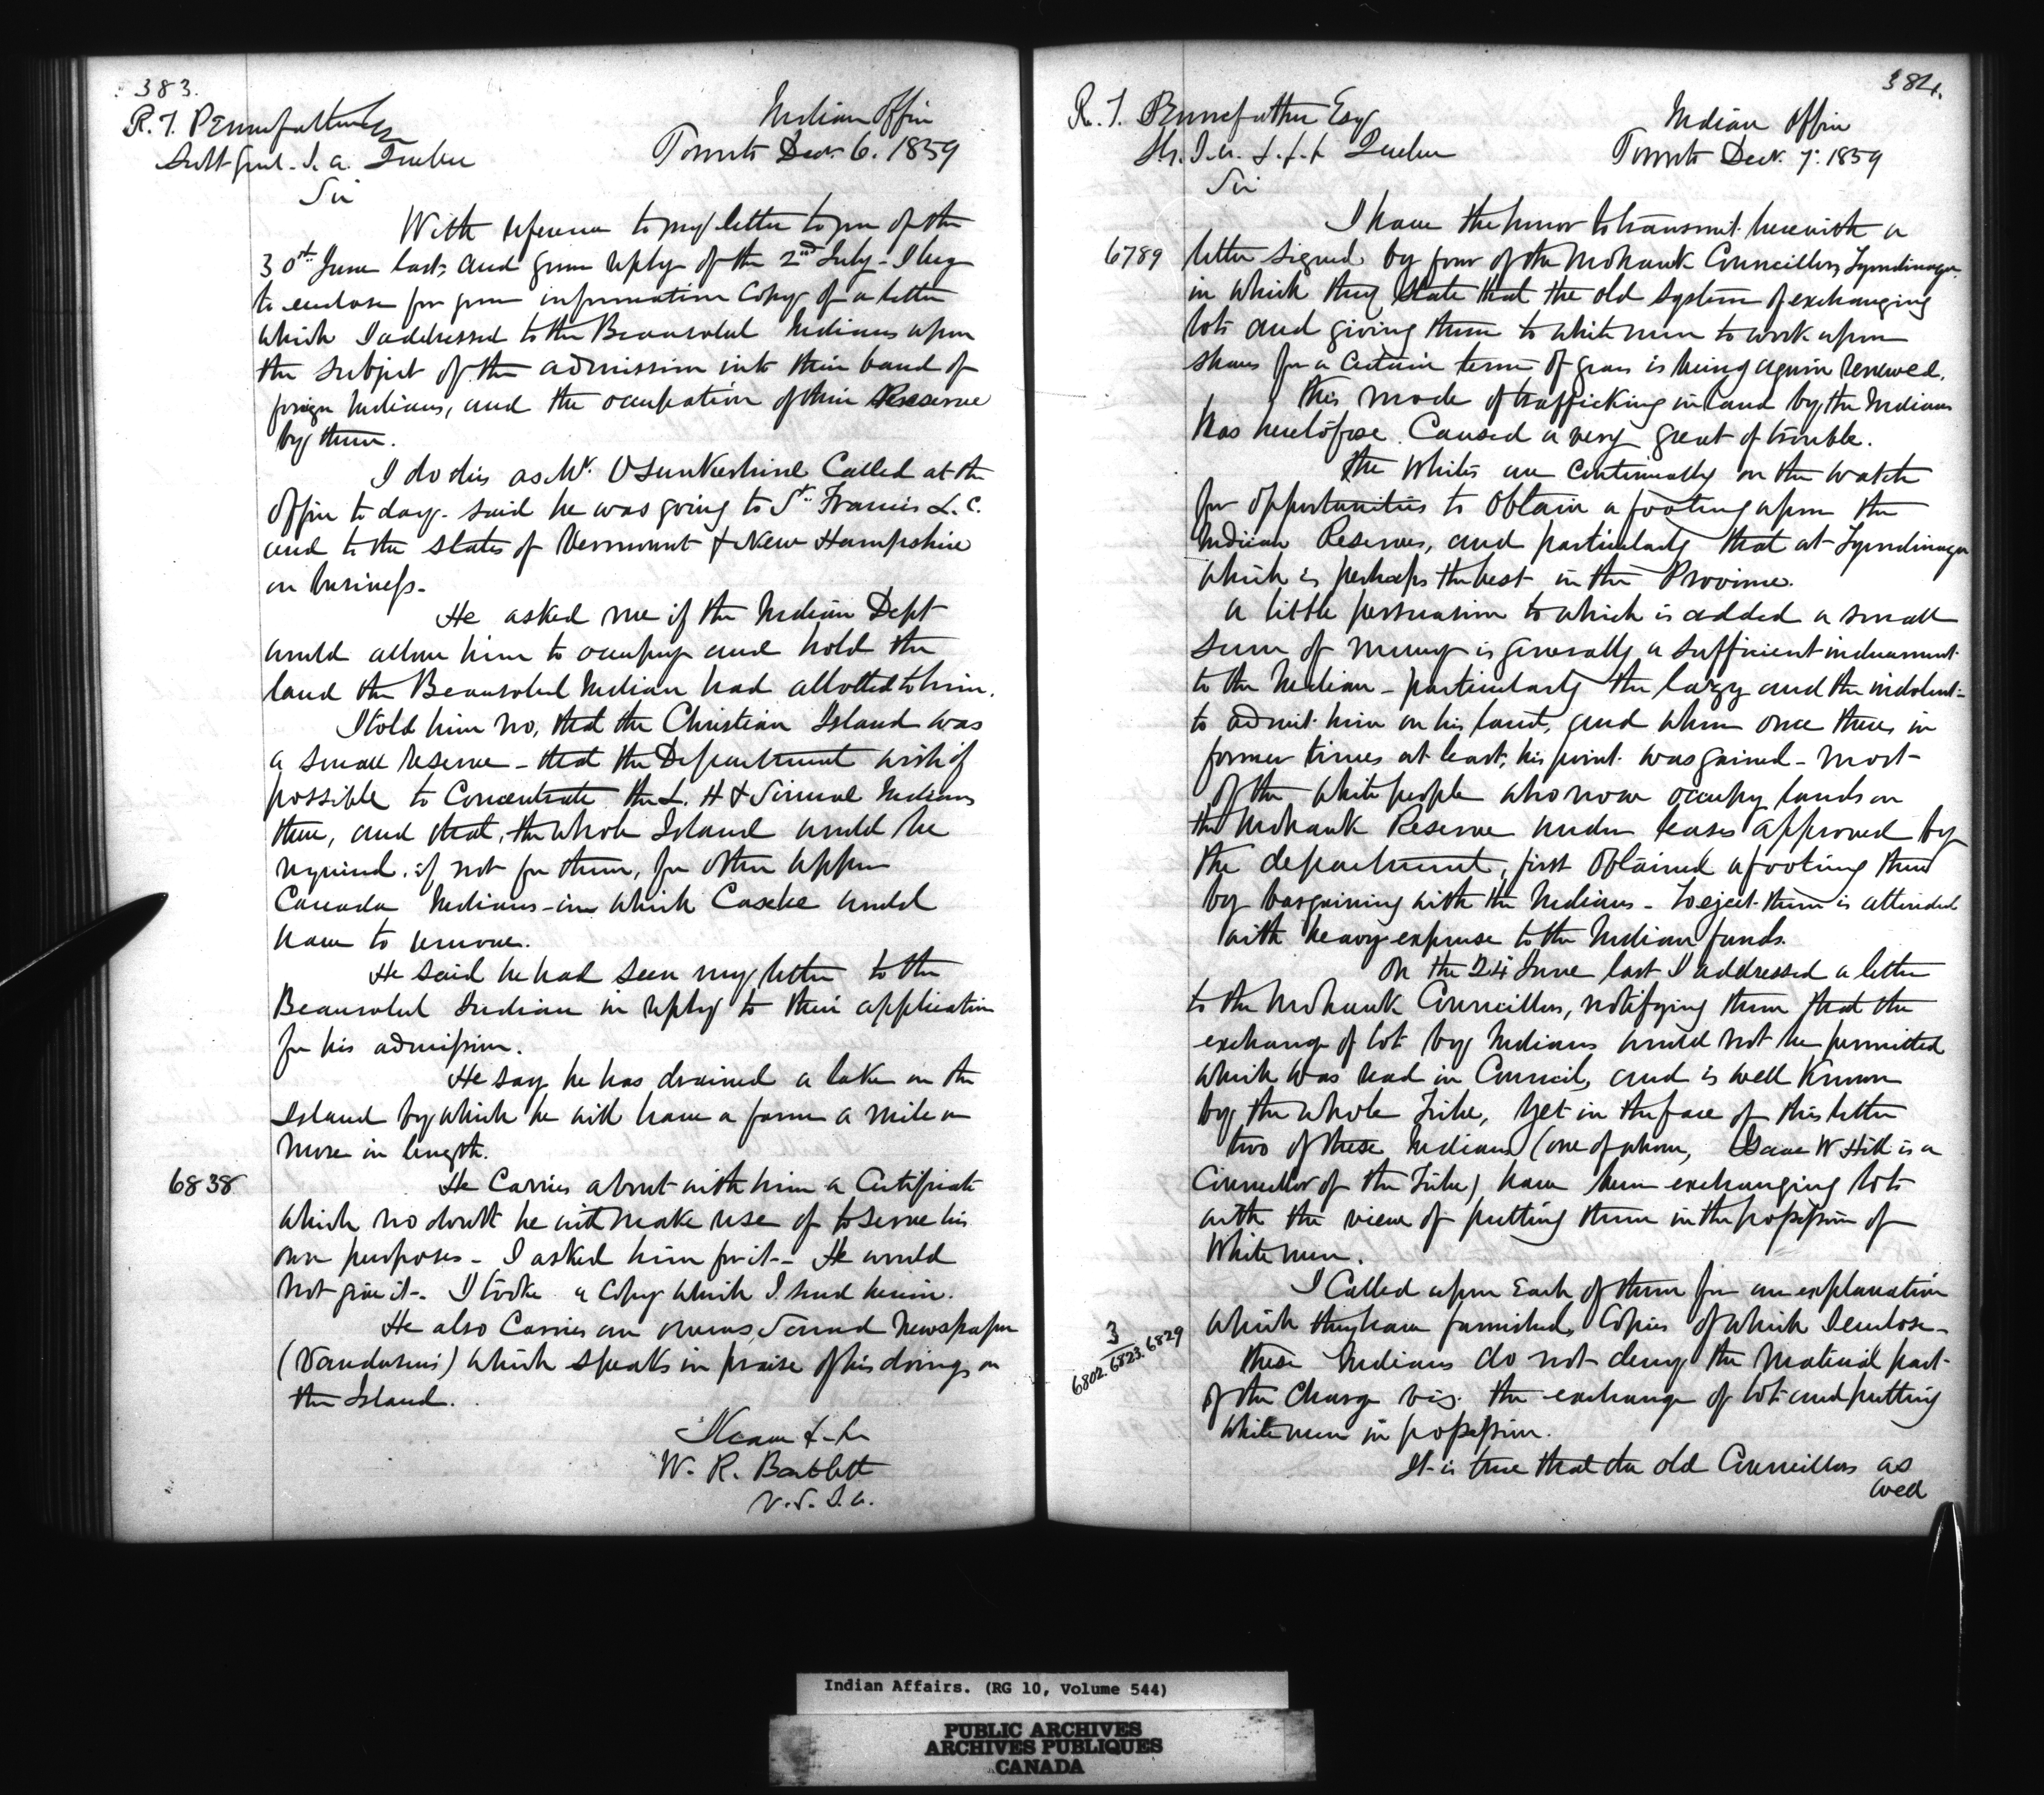 383.
R. T. Pennefather Esq
Supt Genl. I. A. Quebec
Indian Office
Toronto Decr. 6. 1859
Sir
With reference to my letter to you of the
30th June last, and your reply of the 2nd July - I beg
to enclose for your information Copy of a letter
which I addressed to the Beausoleil Indians upon
the subject of the admission into their band of
foreign Indians, and the occupation of their Reserve
by them.
I do this as Mr. Called at the
Office to day - said he was going to St. Francis L. C.
and to the states of Vermount & New Hampshire
on business -
He asked me if the Indian Dept
would allow him to occupy and hold the
land the Beausoleil Indian had allotted to him.
I told him no, that the Christian Island was
a small reserve - that the Department wish if
possible to Concentrate the L. H & Simcoe Indians
there, and that, the whole Island would be
required, if not for them, for other Upper
Canada Indians - in which Case he would
have to remove.
He said he had seen my letter to the
Beausoleil Indian in reply to their application
for his admission.
He says he has drained a lake on the
Island by which he will have a farm a mile or
more in length.
6838
He Carries about with him a Certificate
which no doubt he will make use of to serve his
own purposes - I asked him for it - He would
not give it - I took a Copy which I send herein.
He also Carries an Owens Sound Newspaper
( ) which speaks in praise of his doings on
the Island.
I have &c
W. R. Bartlett
V. S. I. A.
384.
R. T. Pennefather Esq
S. G. I. A. &c &c &c Quebec
Indian Office
Toronto Decr. 7. 1859
Sir
I have the honor to transmit herewith a
6789
letter signed by four of the Mohawk Councillors Tyendinaga
in which they state that the old system of exchanging
lots and giving them to white men to work upon
shares for a Certain term of years is being again renewed.
This mode of trafficking in land by the Indians
has heretofore Caused a very great of trouble.
The Whites are Continually on the watch
for opportunities to obtain a footing upon the
Indian Reserves, and particularly that at Tyendinaga
which is perhaps the best in the Province.
A little persuasion to which is added a small
sum of money is generally a sufficient inducement
to the Indian - particularly the lazy and the indolent -
to admit him on his land, and when once there, in
former times at least, his point was gained - most
of the white people who now occupy lands on
the Mohawk Reserve under leases approved by
the department, first obtained a footing there
by bargaining with the Indians - To eject them is attended
with heavy expense to the Indian funds.
On the 24 June last I addressed a letter
to the Mohawk Councillors, notifying them that the
exchange of lot by Indians would not be permitted
which was read in Council, and is well Known
by the whole Tribe, yet in the face of this letter
two of these Indians (one of whom, Isaac W Hill is a
Councillor of the Tribe) have been exchanging lots
with the view of putting them in the possession of
White men.
I Called upon Each of them for an explanation
3
6802. 6823. 6829
which they have furnished, Copies of which I enclose -
these Indians do not deny the Material part
of the Charge viz. the exchange of lots and putting
white men in possession.
It is true that the old Councillors as
well
Indian Affairs. (RG 10, Volume 544)
PUBLIC ARCHIVES
ARCHIVES PUBLIQUES
CANADA